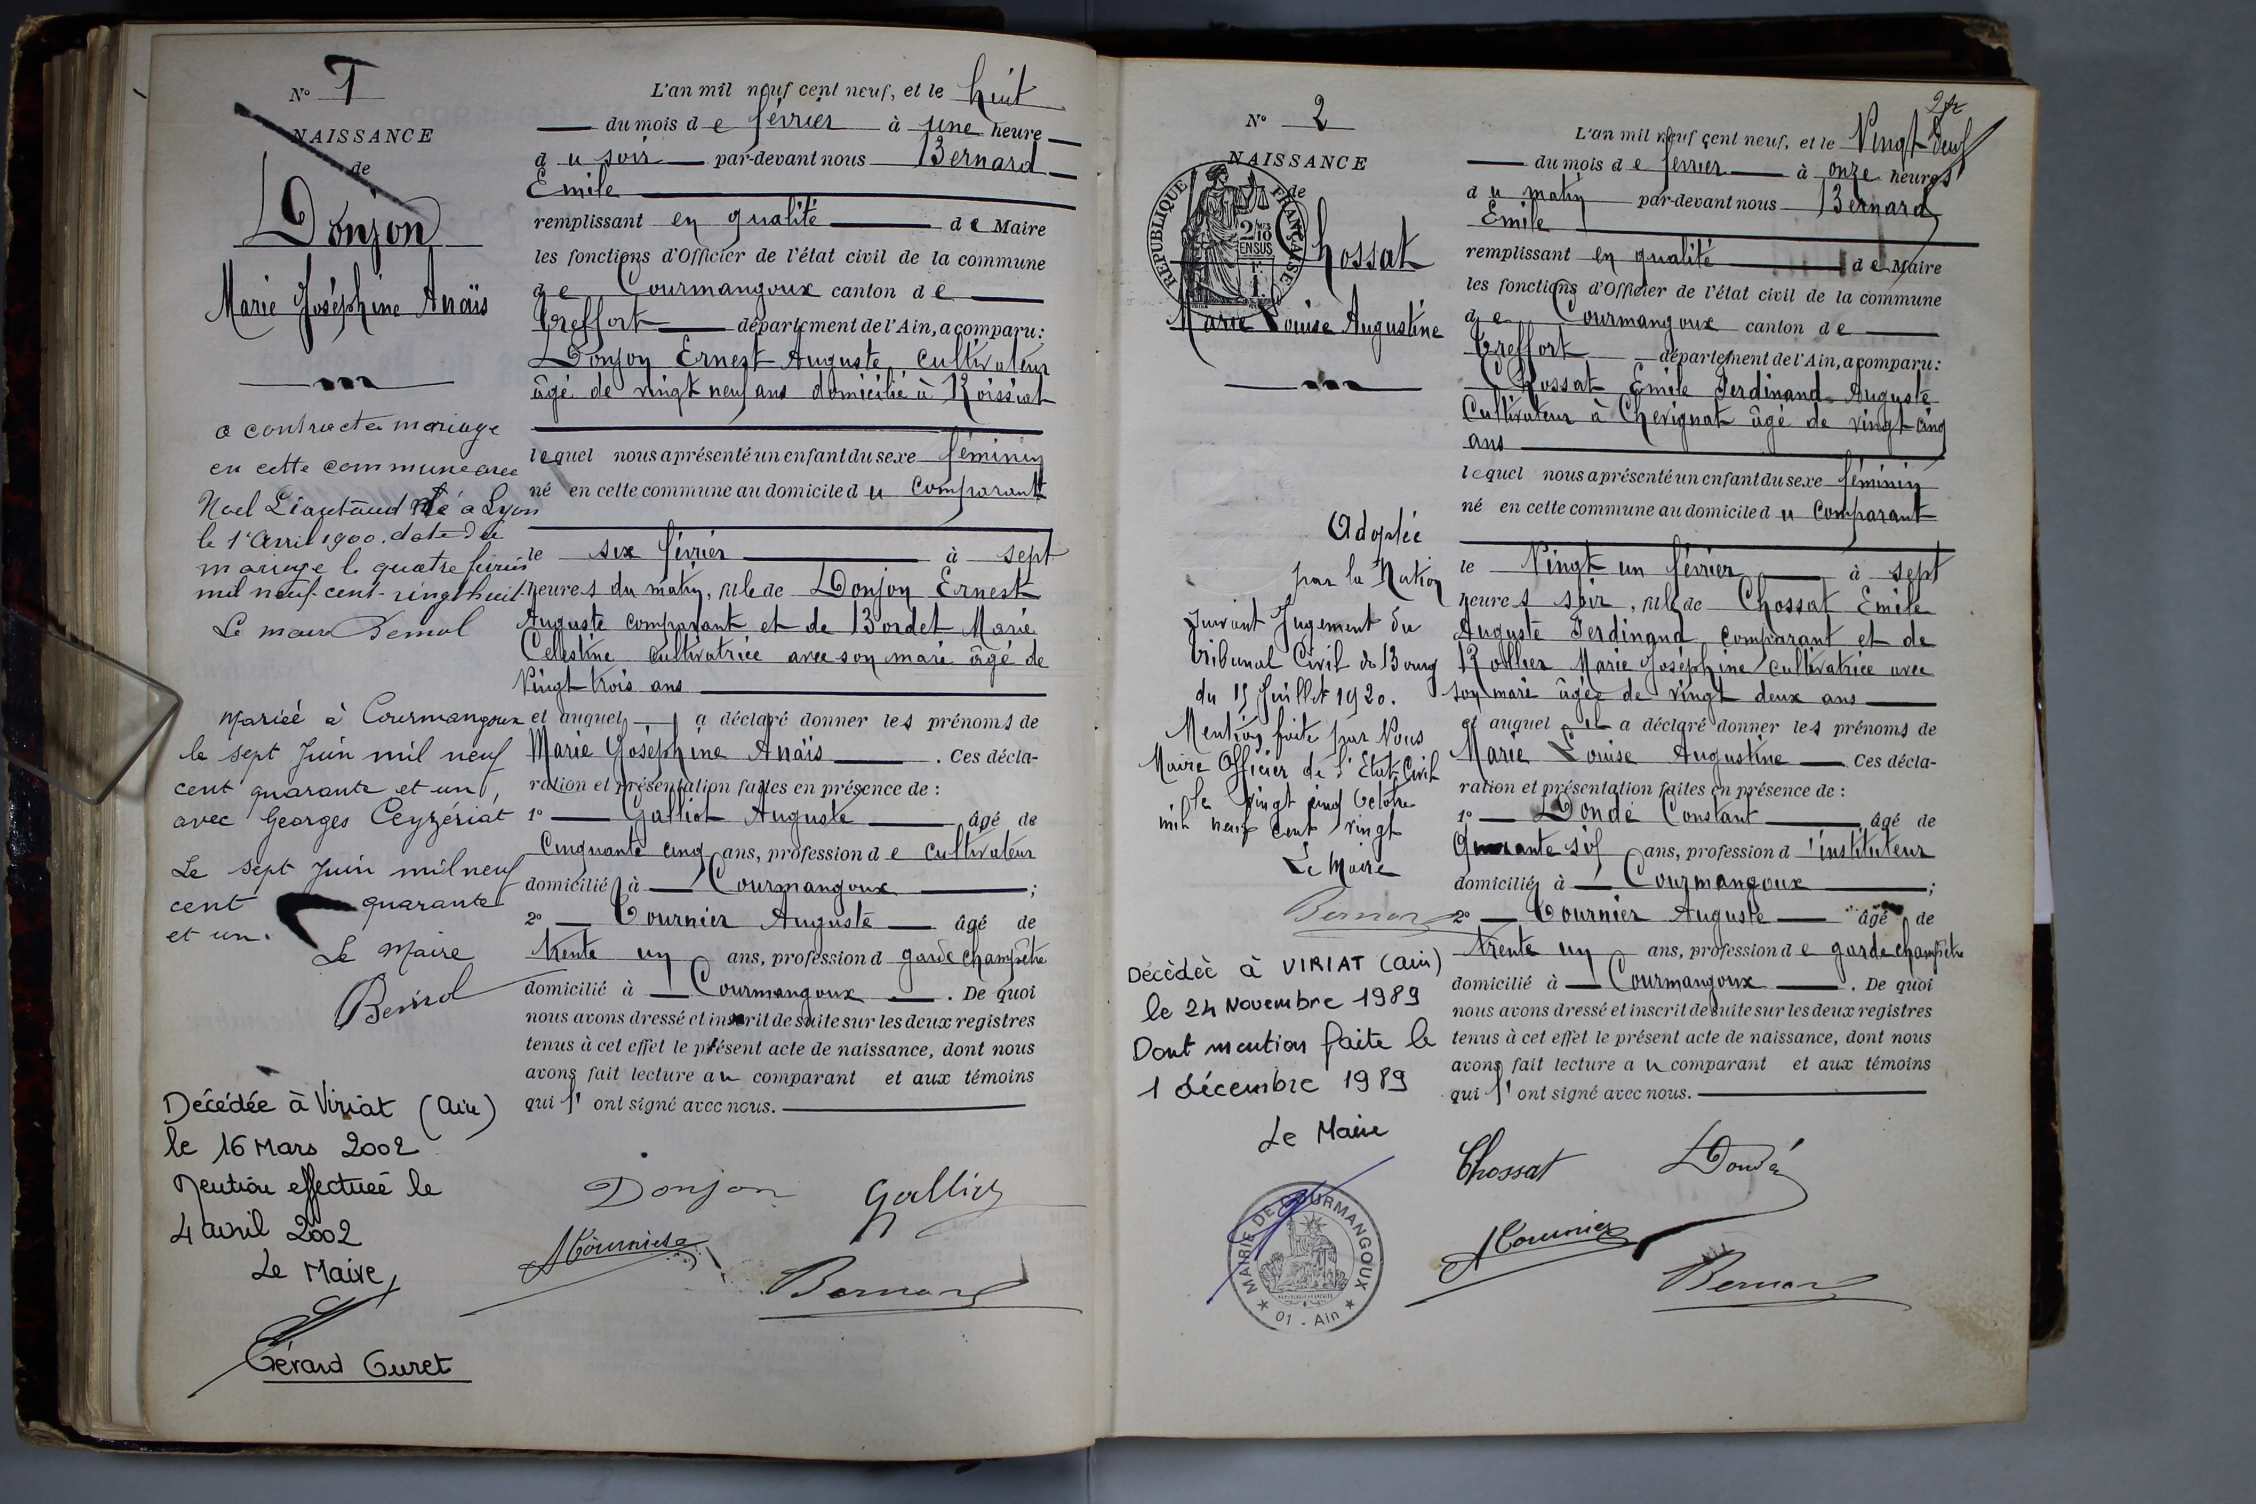 N° 1
NAISSANCE
de
Donjon
Marie Joséphine Anaïs
a contracté mariage
en cette commune avec
Noel Liautaud né à Lyon
le 1er Avril 1900. date du
mariage le quatre février
mil neuf-cent-vingt huit
Le maire
Mariée à Courmangoux
le sept Juin mil neuf
cent quarante et un,
avec Georges Ceyzériat
Le sept Juin mil neuf
cent quarante
et un.
Le Maire
Décédée à Viriat (Ain)
le 16 Mars 2002
Mention effectuée le
4 avril 2002
Le Maire
Gérard Guret
L'an mil neuf cent neuf, et le huit
du mois de février à une heure
du soir par-devant nous Bernard
Emile
remplissant en qualité de Maire
les fonctions d'Officier de l'état civil de la commune
de Courmangoux canton de
Treffort département de l'Ain, a comparu:
Donjon Ernest Auguste, cultivateur
âgé de vingt neuf ans domicilié à Roissiat
lequel nous a présenté un enfant du sexe féminin
né en cette commune au domicile du comparant
le six février à sept
heures du matin, fille de Donjon Ernest
Auguste comparant et de Bordet Marie
Célestine cultivatrice avec son mari âgé de
vingt trois ans
et auquel a déclaré donner les prénoms de
Marie Joséphine Anaïs . Ces décla-
ration et présentation faites en présence de :
1° Galliot Auguste âgé de
Cinquante cinq ans, profession de cultivateur
domicilié à Courmangoux ;
2° Tournier Auguste âgé de
trente un ans, profession d garde champêtre
domicilié à Courmangoux . De quoi
nous avons dressé et inscrit de suite sur les deux registres
tenus à cet effet le présent acte de naissance, dont nous
avons fait lecture au comparant et aux témoins
qui l' ont signé avec nous.
Donjon Galliot
ATournier
Bernard
N° 2
NAISSANCE
de
RÉPUBLIQUE FRANÇAISE
2/10
EN SUS
Chossat
Marie Louise Augustine
Adoptée
par la Nation
suivant Jugement du
Tribunal Civil de Bourg
du 15 Juillet 1920.
Mention faite par Nous
Maire Officier de l'Etat-Civil
le vingt cinq Octobre
mil neuf cent vingt
Le Maire
Bernard
Décédée à VIRIAT (Ain)
le 24 Novembre 1989
Dont mention faite le
1 décembre 1989
Le Maire
MAIRIE DE COURMANGOUX
01 - Ain
L'an mil neuf cent neuf, et le Vingt deux
du mois de février à onze heures
du matin par-devant nous Bernard
Emile
remplissant en qualité de Maire
les fonctions d'Officier de l'état civil de la commune
de Courmangoux canton de
Treffort département de l'Ain, a comparu:
Chossat Emile Ferdinand Auguste
Cultivateur à Chevignat âgé de vingt cinq
ans
lequel nous a présenté un enfant du sexe féminin
né en cette commune au domicile du comparant
le Vingt un février à sept
heures soir, fille de Chossat Emile
Auguste Ferdinand comparant et de
Rollier Marie Joséphine cultivatrice avec
son mari âgée de vingt deux ans
et auquel il a déclaré donner les prénoms de
Marie Louise Augustine Ces décla-
ration et présentation faites en présence de :
1° Dondé Constant âgé de
Quarante six ans, profession d'instituteur
domicilié à Courmangoux ;
2° Tournier Auguste âgé de
trente un ans, profession de garde champêtre
domicilié à Courmangoux . De quoi
nous avons dressé et inscrit de suite sur les deux registres
tenus à cet effet le présent acte de naissance, dont nous
avons fait lecture au comparant et aux témoins
qui l' ont signé avec nous.
Chossat Dondé
ATournier
Bernard